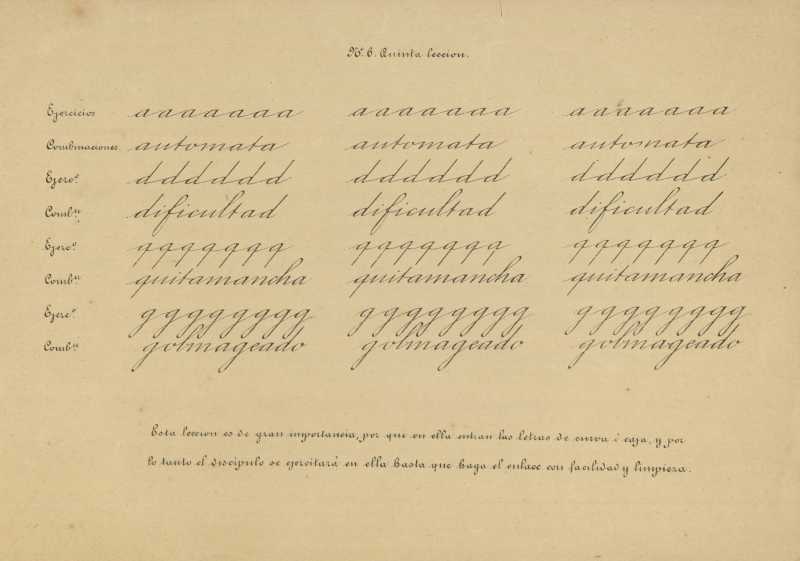 Nº 6. Quinta leccion.
Ejercicios aaaaaaa aaaaaaa aaaaaaa
Combinaciones automata automata automata
Ejercº dddddd dddddd dddddd
Combⁿ dificultad dificultad dificultad
Ejercº qqqqqqq qqqqqqq qqqqqqq
Combⁿ quitamancha quitamancha quitamancha
Ejercº gggggggg gggggggg gggggggg
Combⁿ golmageado golmageado golmageado
Esta leccion es de gran importancia, por que en ella entran las letras de curva i caja, y por
lo tanto el discipulo se ejercitará en ella hasta que haga el enlace con facilidad y limpieza.